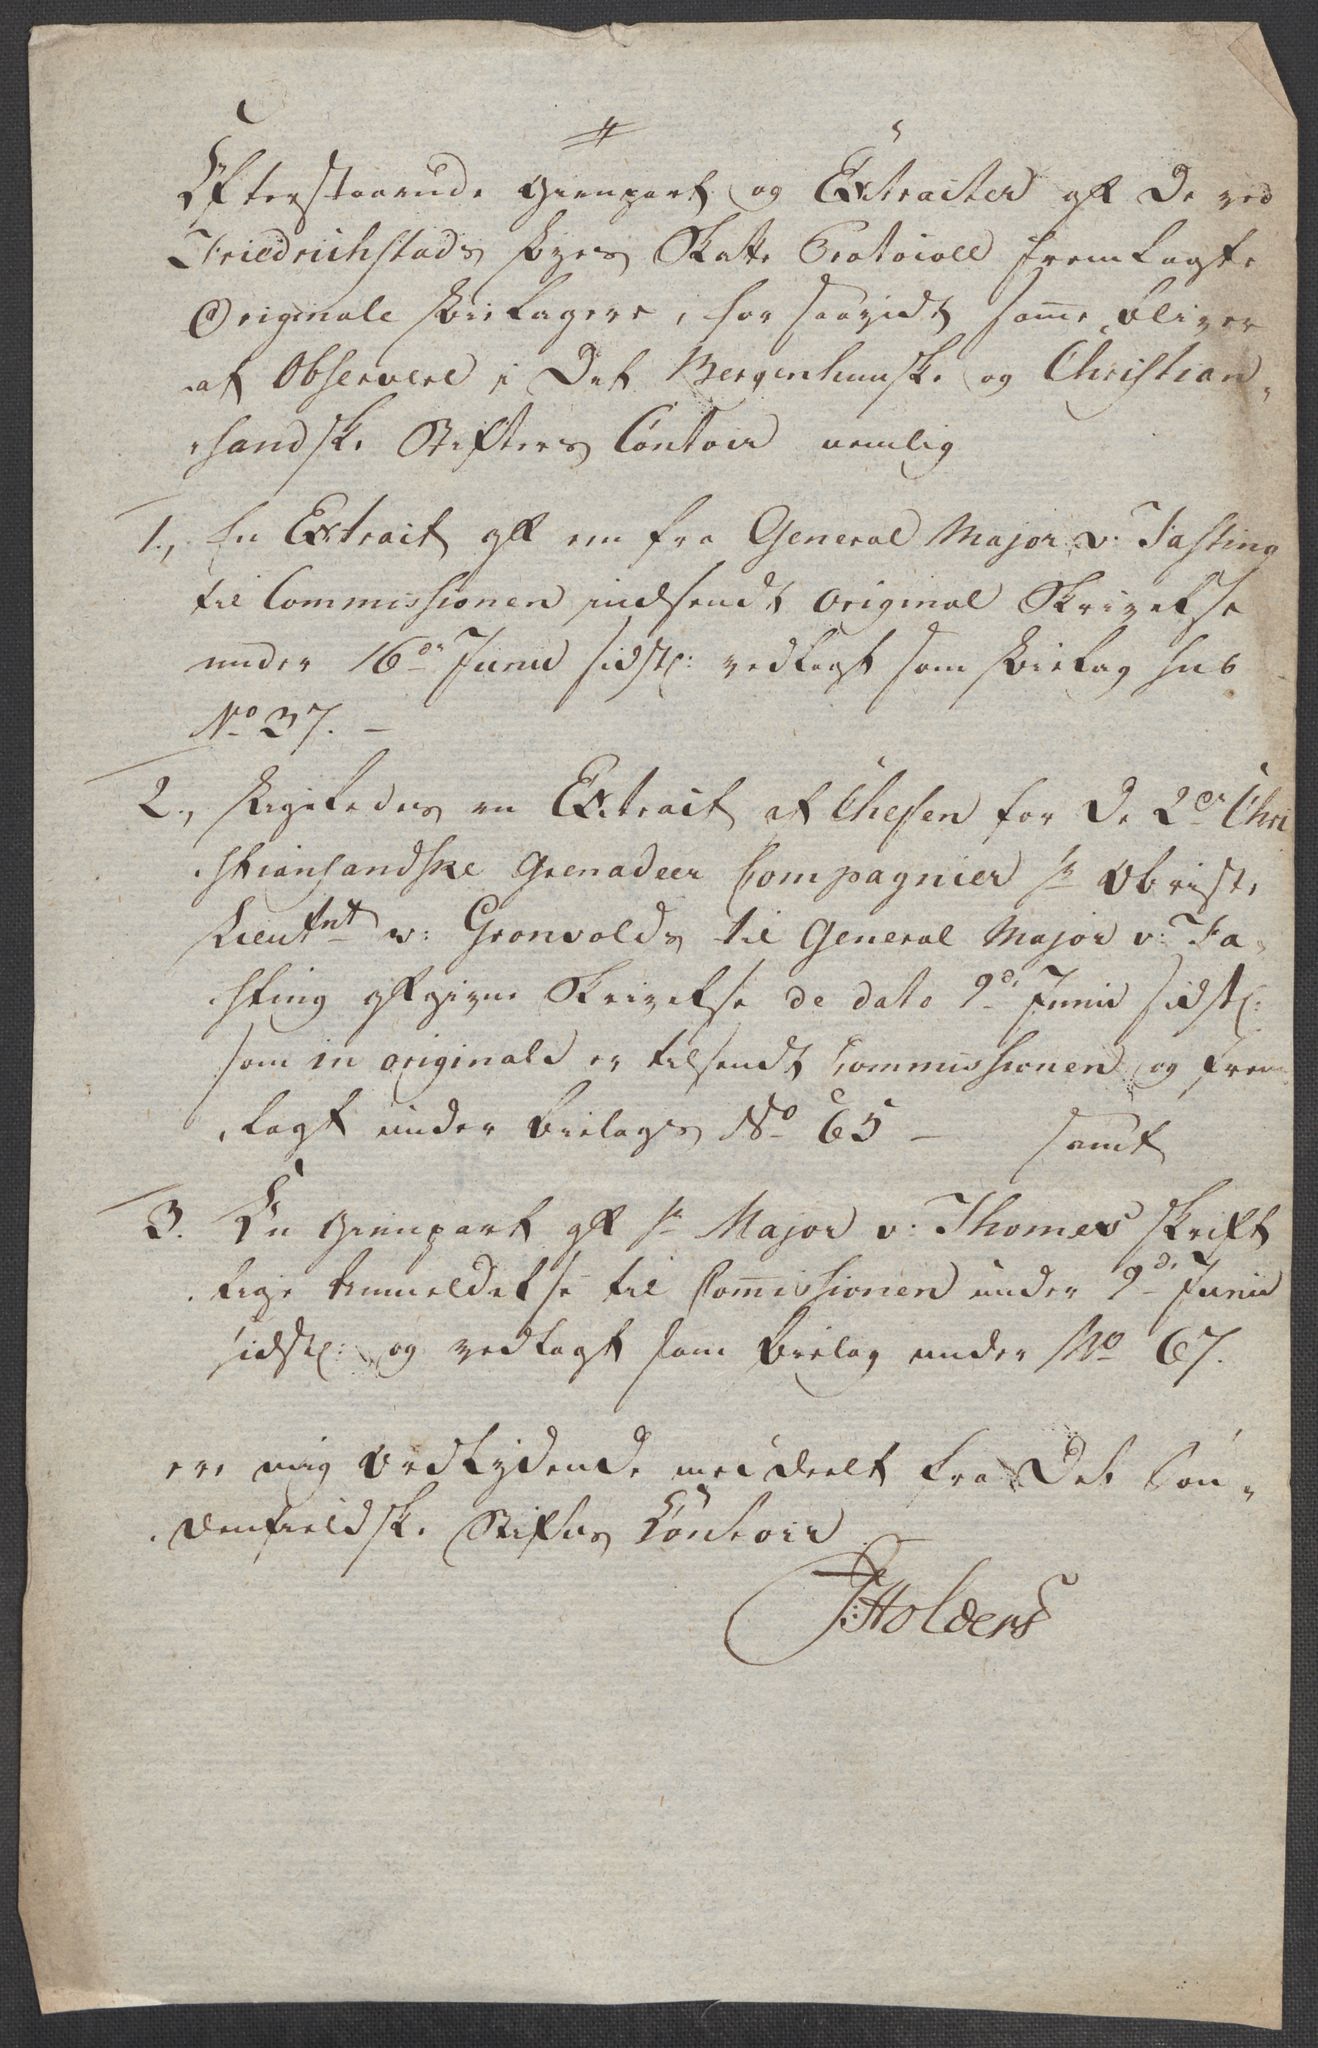 Efterstaaende Gienpart og Extracter aff de ved
Friedrichstads Byes Skatte Protocoll fremlagte
Originale Bielagere, for saavidt samme bliver
at Observere i Det Bergenhuuske og Christian-
sandske Stifters Contoir nemlig
1., En Extract aff een fra General Major v: Fasting
til Commissionen indsendt original Skrivelse
under 16de Junii sidstl: vedlagt som Bielag sub
No 37. —
2., Ligeledes en Extract af Chefen for de 2de Chri
stiansandske Grenadeer Compagnier Hr Obriste
Lieutnt v: Gronvolds til General Major v: Fa-
sting affgivne Skrivelse de dato 9de Junii sidstl:
som in originali er tilsendt Commissionen og frem
lagt under Bielags No 65 — samt
3. En Gienpart aff Hr Major v: Thomes skrift
lige Anmeldelse til Commissionen under 9de Junii
sidstl: og vedlagt som Bielag under No 67.
ere mig vedkydende meddeelt fra Det Søn-
denfieldske Stifts Contoir
J: Holders